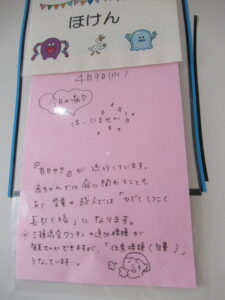 ほけん
4月9日(水)
今日の病気
は、いません
「百日せき」が流行しています。
赤ちゃんでは命に関わることも
あり 学童や成人では ひどく しつこく
長引く咳 になります。
※三種混合ワクチンの追加接種が
できますが、「任意接種(自費)」
となっています…。